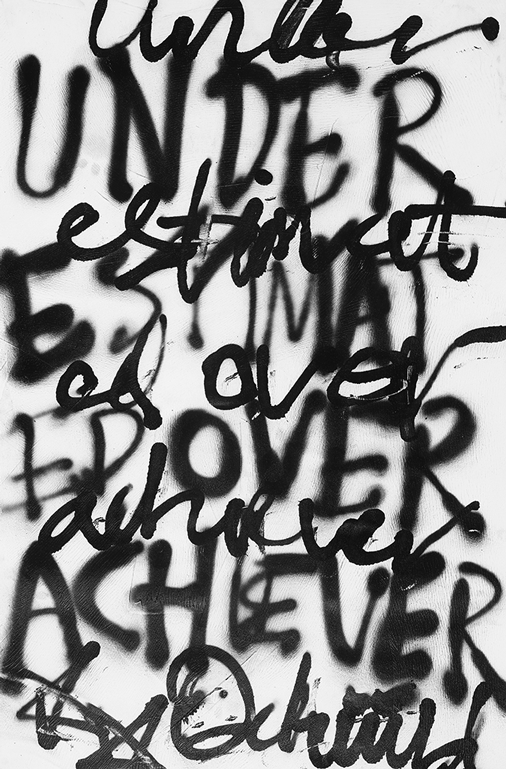 under
UNDER
estimat
ESTIMAT
ed over
ED OVER
achiever
ACHIEVER